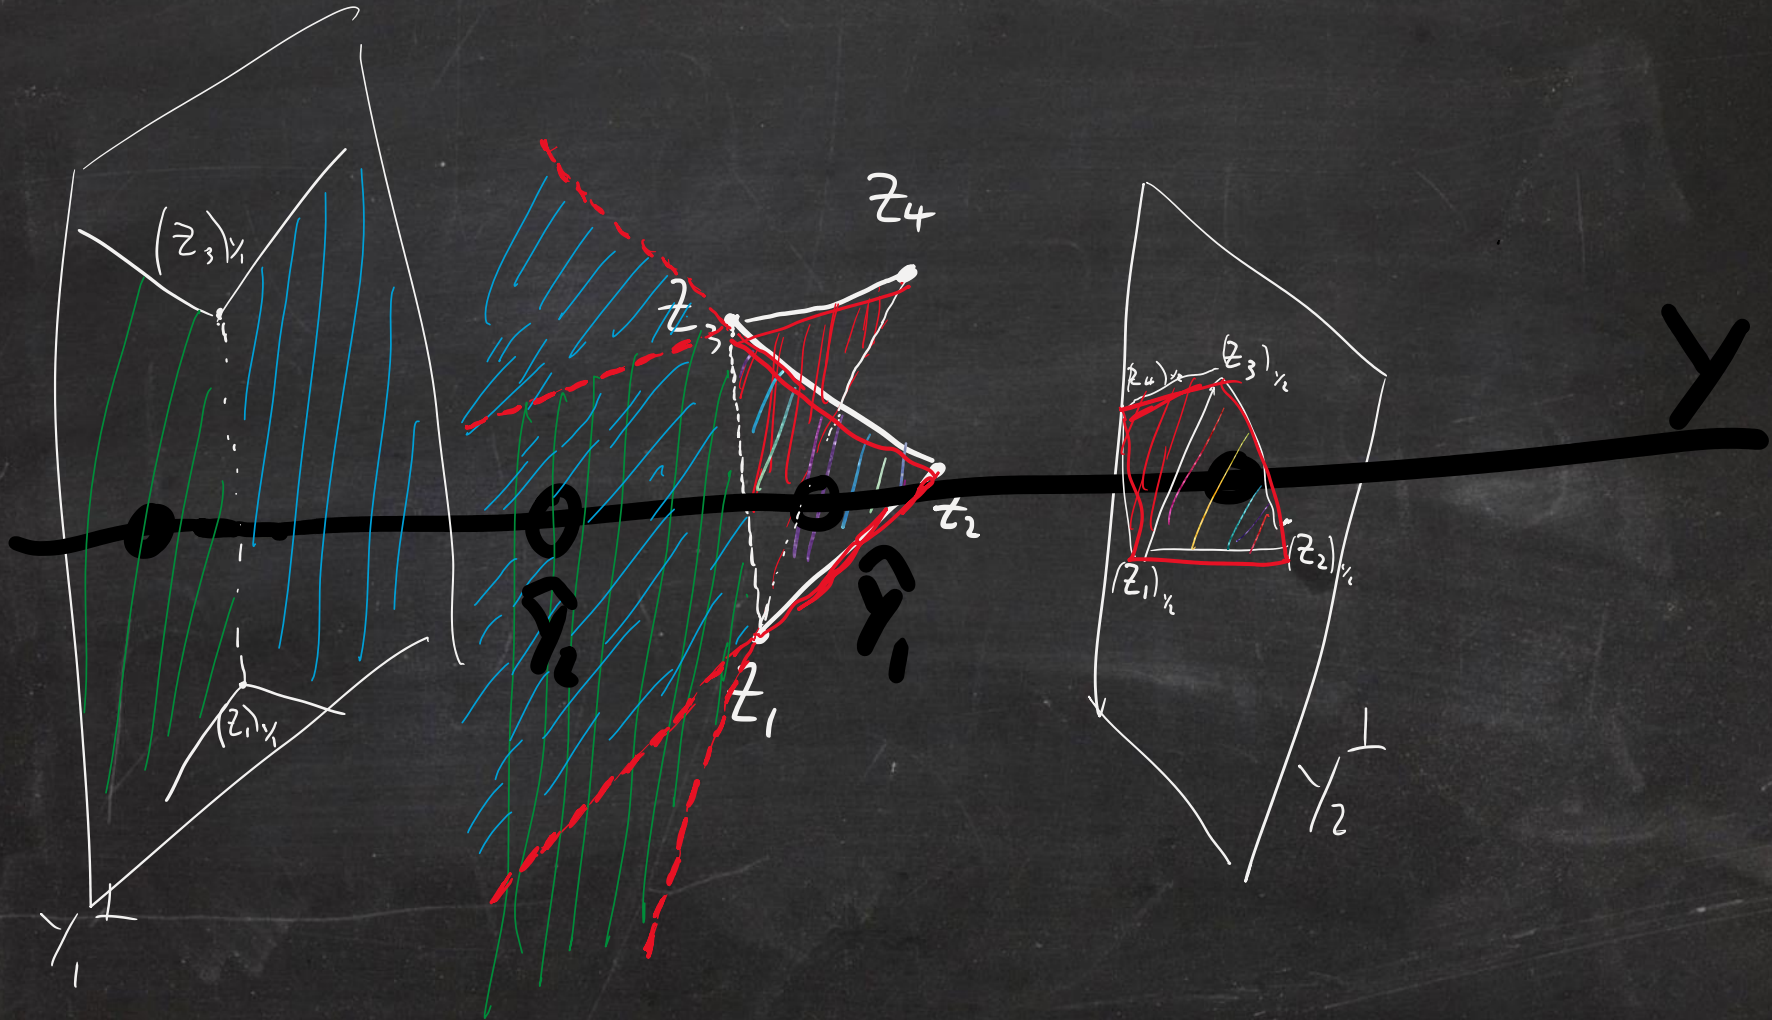 (Z₃)_{Y₁}
(Z₁)_{Y₁}
Y₁^⊥
Z₃
Z₄
Z₂
Z₁
Ŷ₂
Ŷ₁
(Z₄)_{Y₂}
(Z₃)_{Y₂}
(Z₁)_{Y₂}
(Z₂)_{Y₂}
Y₂^⊥
Y